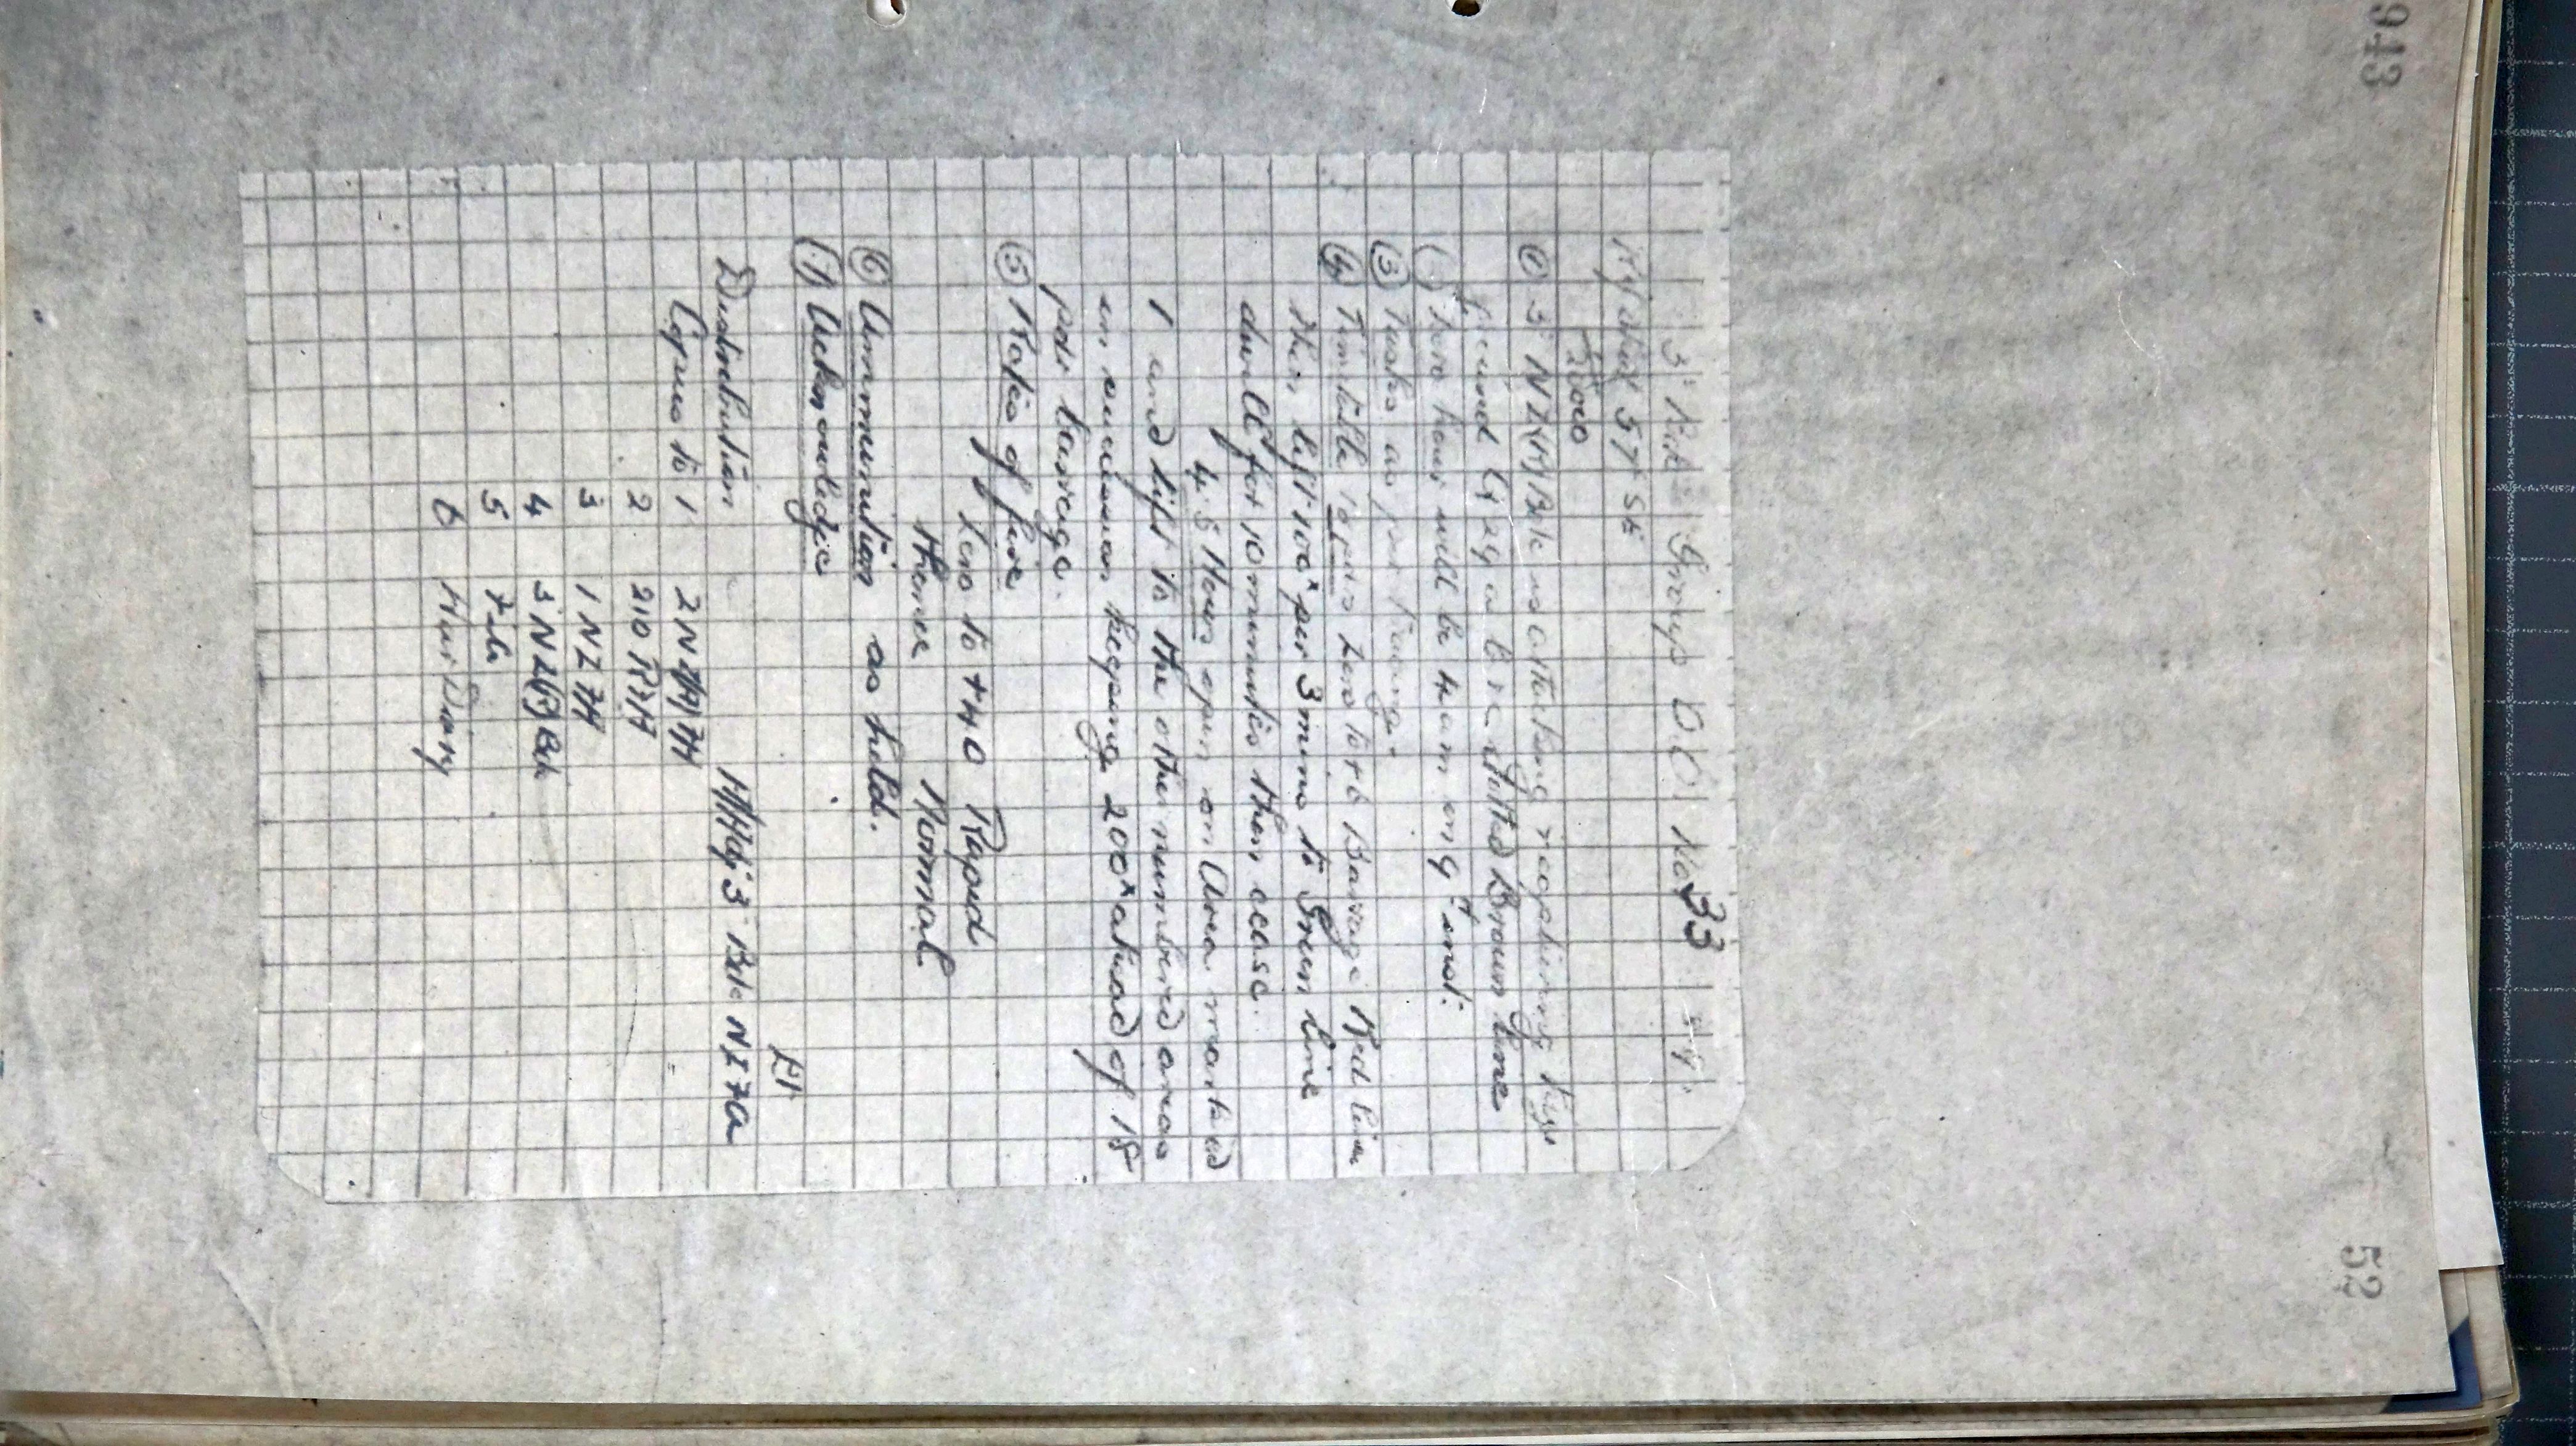 943
52
3rd Bde Group O.O. No 33
Ref sheet 57 SE
1/20000
① 3rd NZ(R) Bde is attacking
found
Zero hour will be 4 am on 9th inst.
③ Tasks as per tracings
④ Timetable 18 pdrs Zero to +6 Barrage Red line
then lift 100x per 3 mins to Green line
dwell for 10 minutes then cease.
4.5 Hows open on Area marked
1 and lift to the other numbered areas
in succession keeping 200x ahead of 18
pdr barrage.
⑤ Rates of fire
Zero to +40 Rapid
thence Normal
⑥ Ammunition as held.
(7) Acknowledge
Lt
A/Adj 3rd Bde NZFA
Distribution
Copies to 1 2 NZ(A)FA
2 210 RFA
3 1 NZFA
4 3 NZ(R) Bde
5 File
6 War Diary